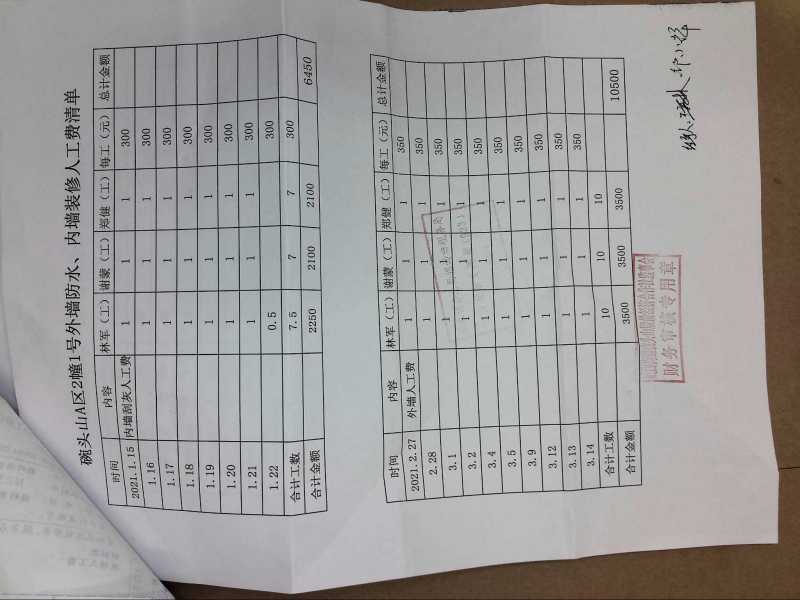 碗头山A区2幢1号外墙防水、内墙装修人工费清单
时间 内容 林军（工） 谢蒙（工） 郑健（工） 每工（元） 总计金额
2021.1.15 内墙刮灰人工费 1 1 1 300
1.16 1 1 1 300
1.17 1 1 1 300
1.18 1 1 1 300
1.19 1 1 1 300
1.20 1 1 1 300
1.21 1 1 1 300
1.22 0.5 300
合计工数 7.5 7 7 300
合计金额 2250 2100 2100 6450
时间 内容 林军（工） 谢蒙（工） 郑健（工） 每工（元） 总计金额
2021.2.27 外墙人工费 1 1 1 350
2.28 1 1 1 350
3.1 1 1 1 350
3.2 1 1 1 350
3.4 1 1 1 350
3.5 1 1 1 350
3.9 1 1 1 350
3.12 1 1 1 350
3.13 1 1 1 350
3.14 1 1 1 350
合计工数 10 10 10
合计金额 3500 3500 3500 10500
财务审核专用章